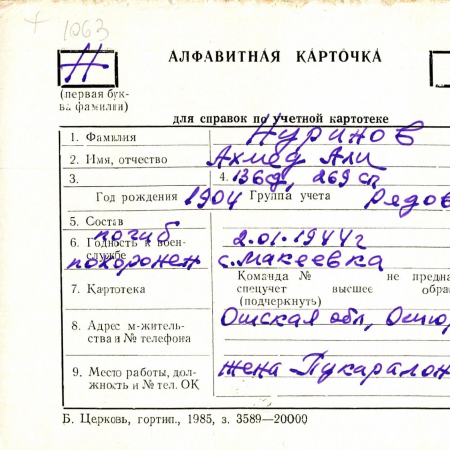 + 1063
АЛФАВИТНАЯ КАРТОЧКА
Н
(первая бук-
ва фамилии)
для справок по учетной картотеке
1. Фамилия Нуринов
2. Имя, отчество Ахмед Али
3. 4. 136 сд, 269 сп
Год рождения 1904 Группа учета Рядов
5. Состав
погиб
6. Годность к воен-
службе 2.01.1944г
похоронен с. Макеевка
Команда № не предна
7. Картотека спецучет высшее обра
(подчеркнуть)
8. Адрес м-житель-
ства и № телефона Ошская обл,
9. Место работы, дол-
жность и № тел. ОК жена
Б. Церковь, гортип., 1985, з. 3589—20000